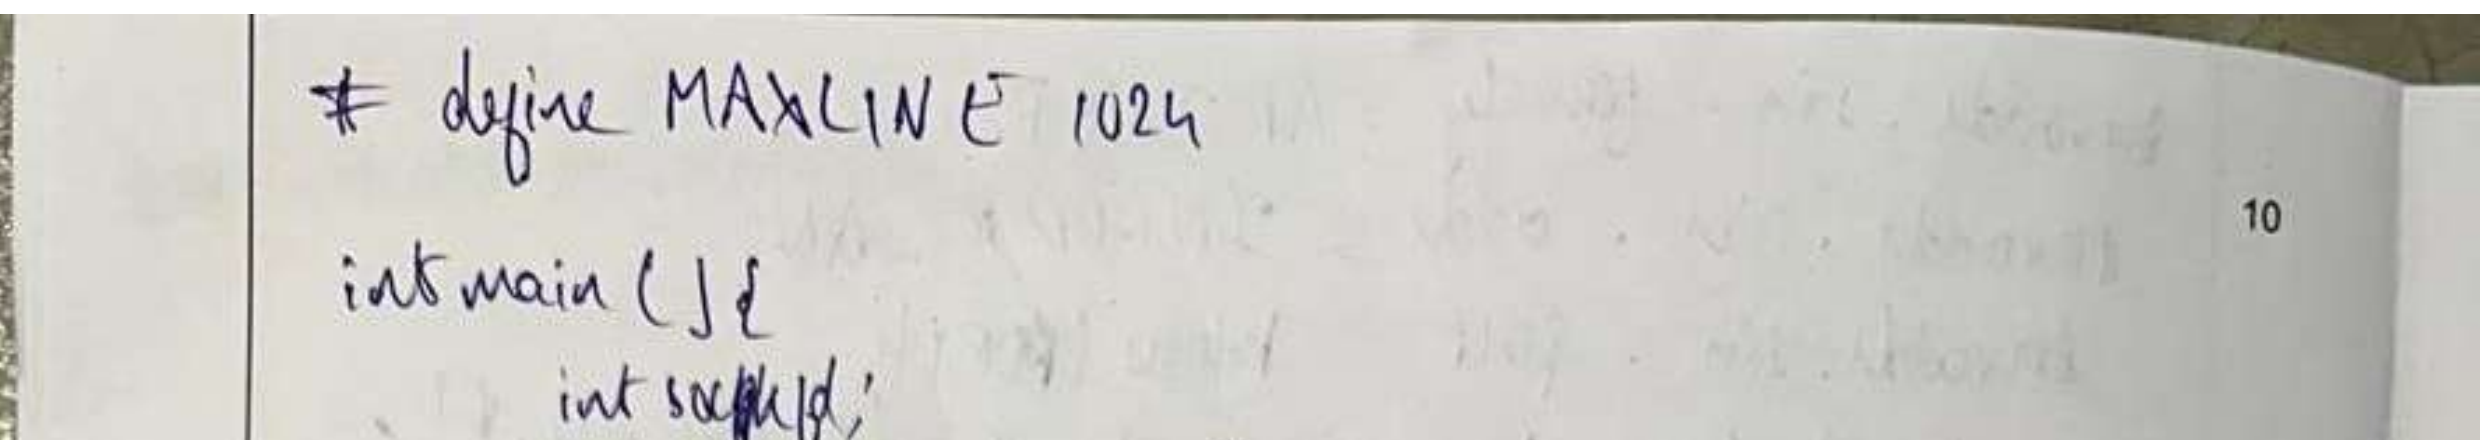 # define MAXLINE 1024
10
int main () {
int sockfd;